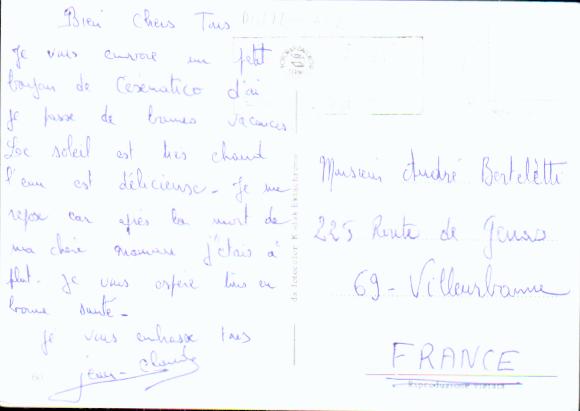 Bien Chers Tous
Je vous envoie un petit
bonjour de Césenatico d'où
je passe de bonnes vacances
Le soleil est très chaud
l'eau est délicieuse - Je me
repose car après la mort de
ma chère maman j'étais à
plat. Je vous espère tous en
bonne santé -
je vous embrasse tous
jean-claude
da fotocolor Kodak Ektachrome
Monsieur André Bertelètti
225 Route de Genas
69 - Villeurbanne
FRANCE
Riproduzione vietata